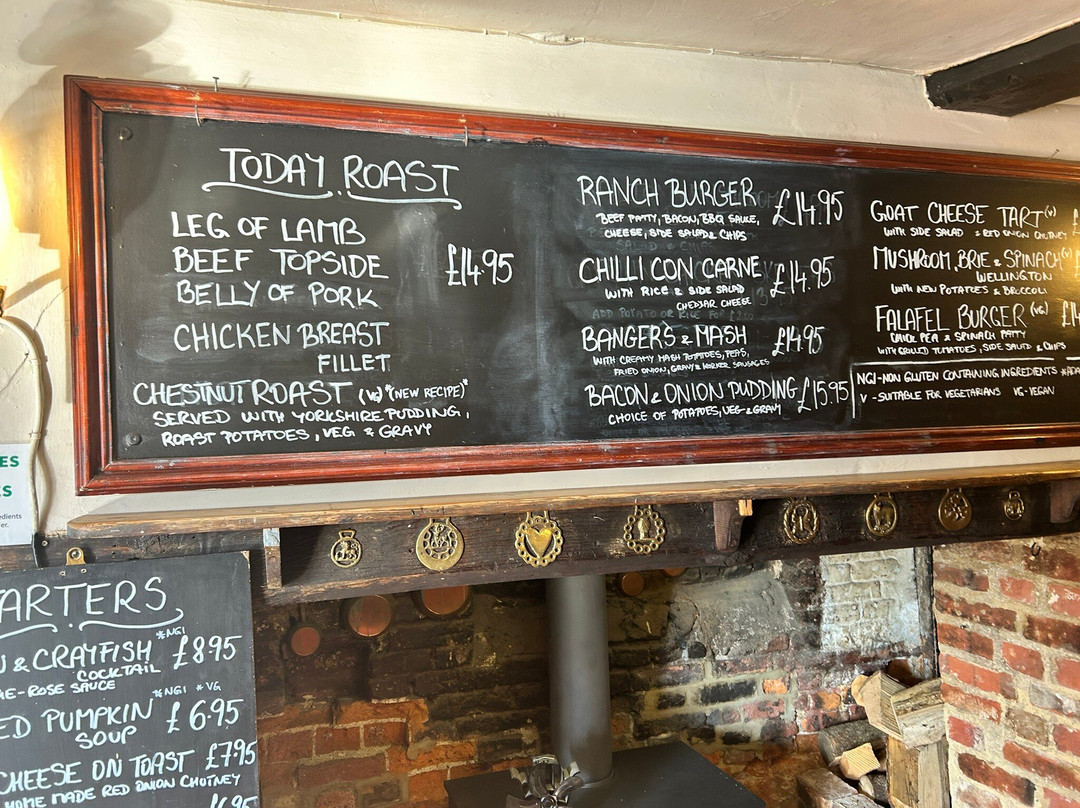 TODAY ROAST
LEG OF LAMB
BEEF TOPSIDE £14.95
BELLY OF PORK
CHICKEN BREAST
FILLET
CHESTNUT ROAST (VG) *(NEW RECIPE)*
SERVED WITH YORKSHIRE PUDDING,
ROAST POTATOES, VEG & GRAVY
RANCH BURGER £14.95
BEEF PATTY, BACON, BBQ SAUCE,
CHEESE, SIDE SALAD & CHIPS
CHILLI CON CARNE £14.95
WITH RICE & SIDE SALAD
CHEDJAR CHEESE
ADD POTATO OR RICE FOR £2.50
BANGERS & MASH £14.95
WITH CREAMY MASH POTATOES, PEAS,
FRIED ONION, GRAVY & SAUSAGES
BACON & ONION PUDDING £15.95
CHOICE OF POTATOES, VEG & GRAVY
GOAT CHEESE TART (V) £
WITH SIDE SALAD & RED ONION CHUTNEY
MUSHROOM, BRIE & SPINACH (V)
WELLINGTON
WITH NEW POTATOES & BROCCOLI
FALAFEL BURGER (VG) £14
CHICK PEA & SPINACH PATTY
WITH GRILLED TOMATOES, SIDE SALAD & CHIPS
NGI-NON GLUTEN CONTAINING INGREDIENTS *ADA
V - SUITABLE FOR VEGETARIANS VG-VEGAN
ES
S
edients
er.
ARTERS
& CRAYFISH *NGI £8.95
COCKTAIL
IE-ROSE SAUCE
ED PUMPKIN *NGI *VG £6.95
SOUP
CHEESE ON TOAST £7.95
HOME MADE RED ONION CHUTNEY